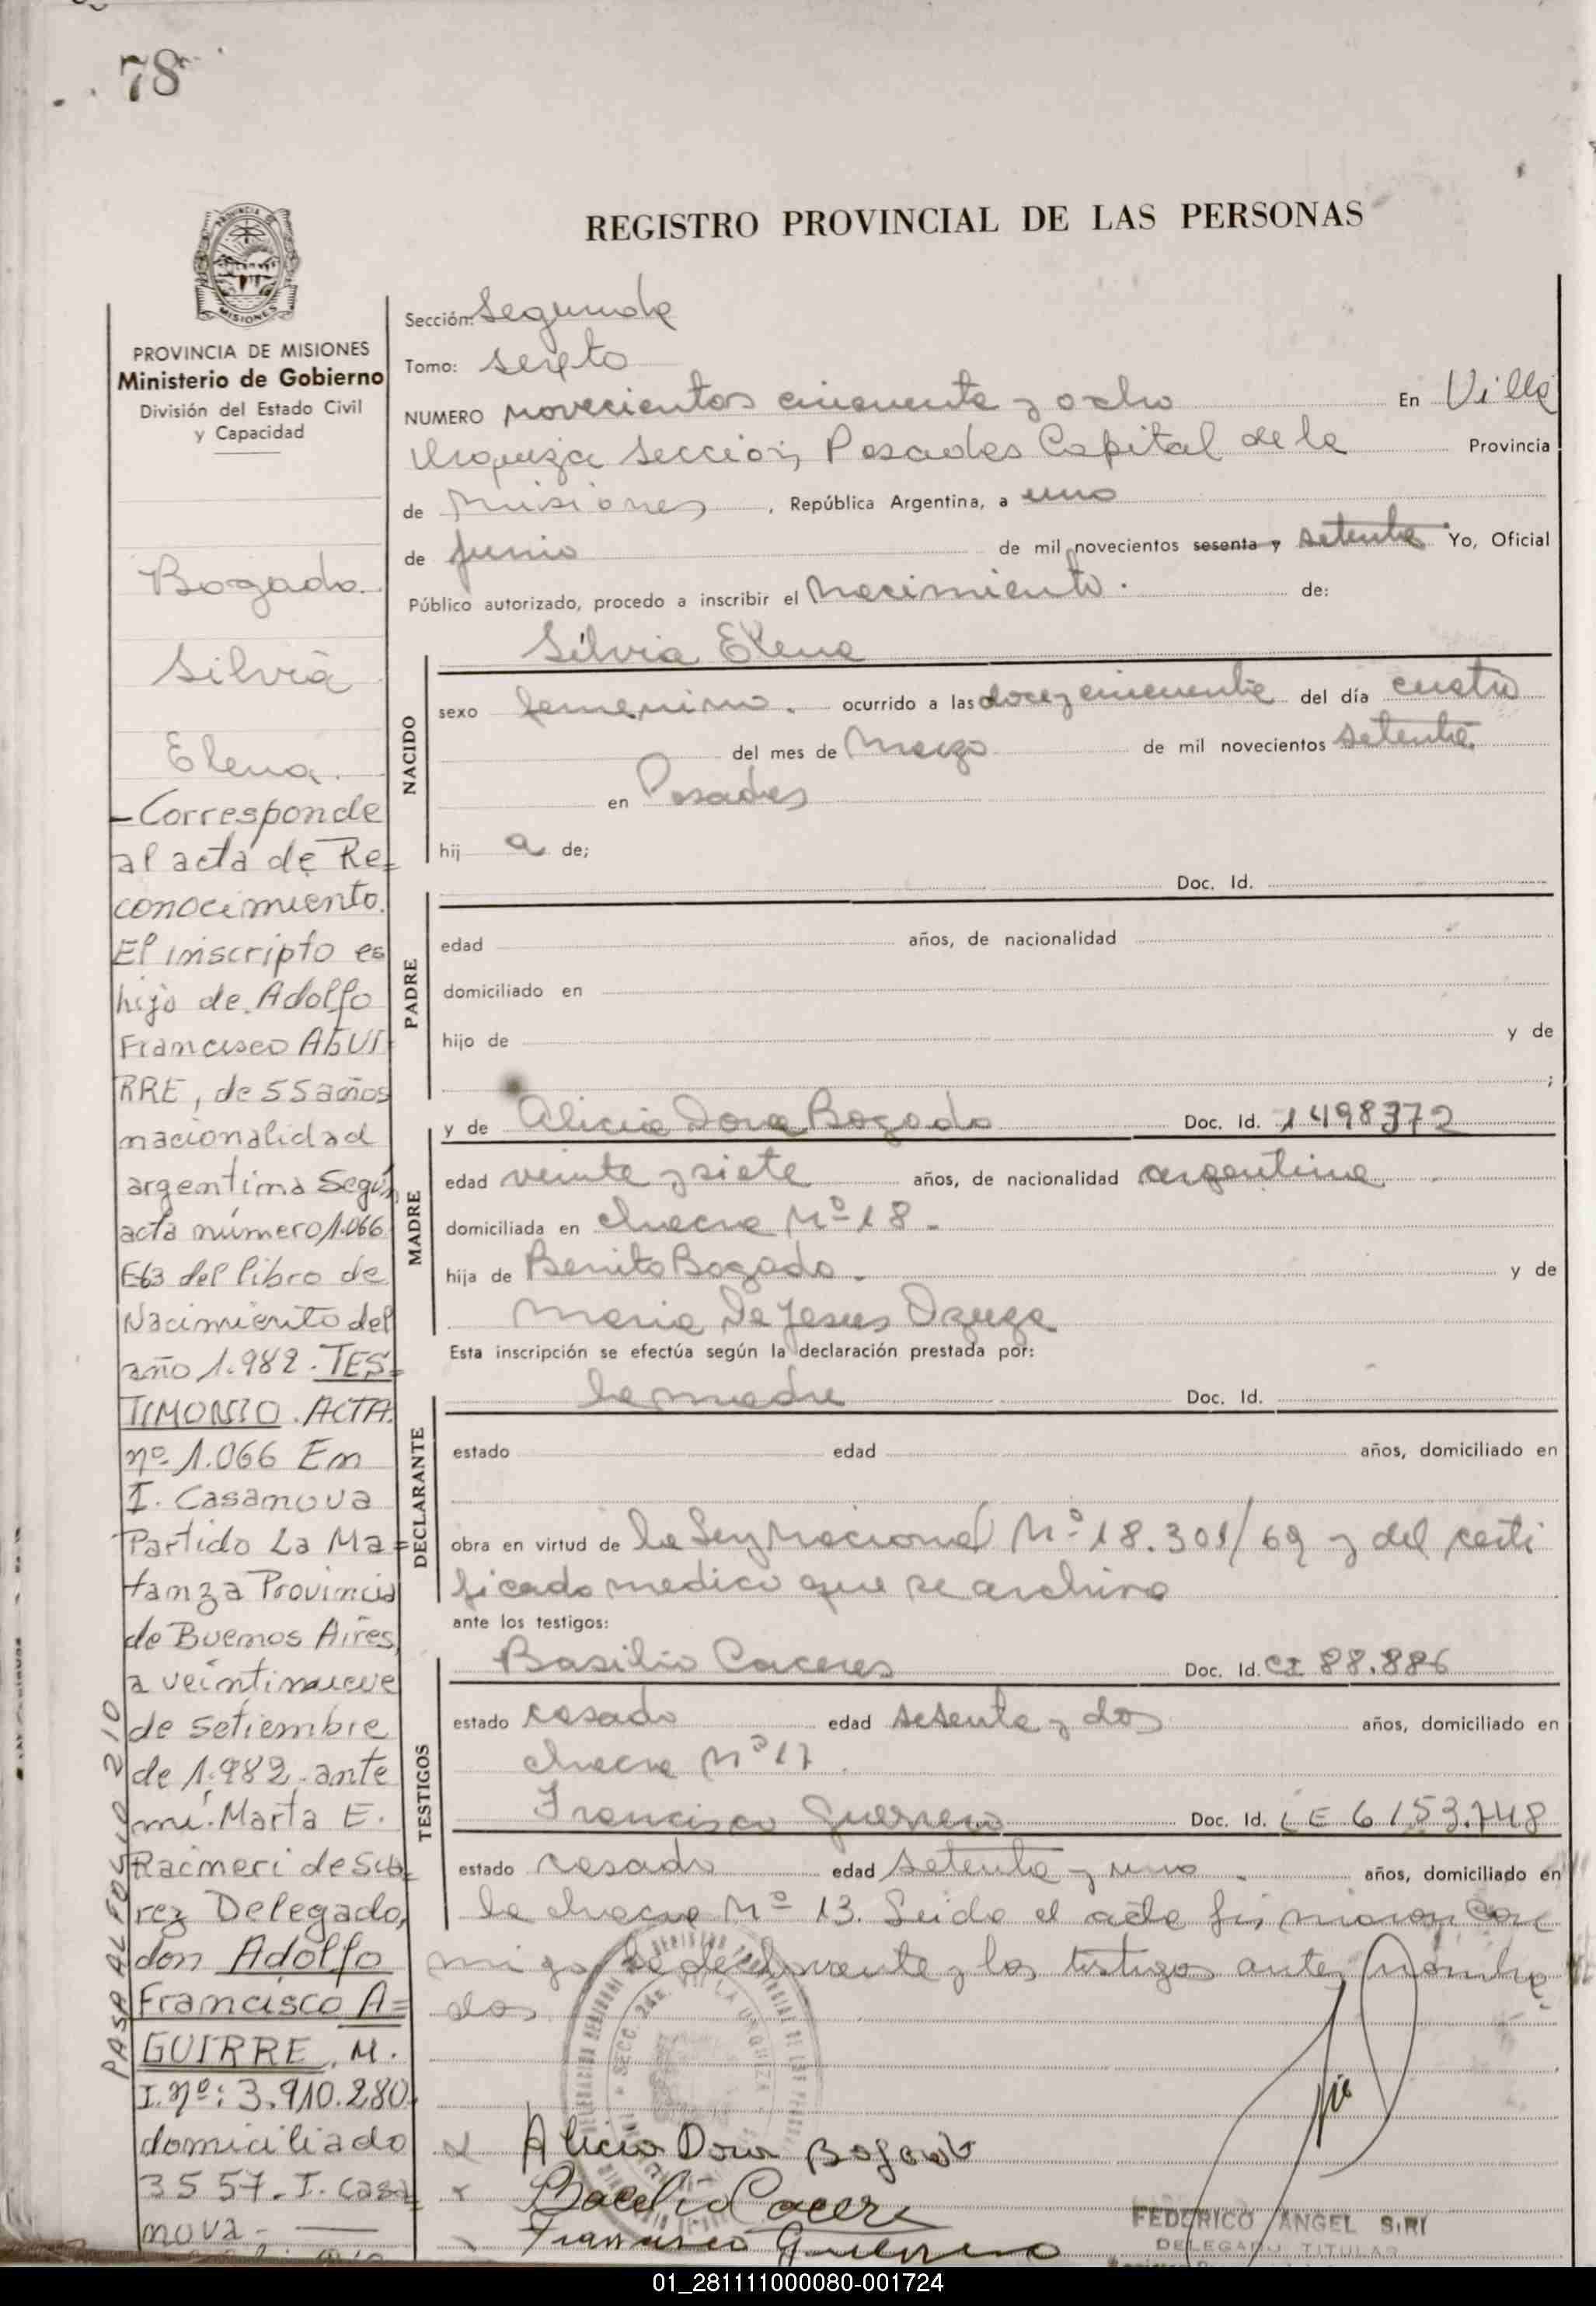 78
REGISTRO PROVINCIAL DE LAS PERSONAS
PROVINCIA DE MISIONES
Ministerio de Gobierno
División del Estado Civil
y Capacidad
Bogado
Silvia
Elena.
-Corresponde
al acta de Re=
conocimiento.
El inscripto es
hijo de Adolfo
Francisco AGUI
RRE, de 55 años
nacionalidad
argentina Según
acta número 1.066
E63 del libro de
Nacimiento del
año 1.982. TES=
TIMONIO. ACTA.
nº 1.066 En
I. Casanova
Partido La Ma=
tanza Provincia
de Buenos Aires,
a veintinueve
de setiembre
de 1.982. ante
mí. Marta E.
de Suá
rez Delegado,
don Adolfo
Francisco A=
GUIRRE, M.
I. nº: 3.910.280.
domiciliado
3557. I. Casa
nova -
PASA AL FOLIO 210
Sección: Segunda
Tomo: sexto
NUMERO novecientos cincuenta y ocho En Villa
Urquiza sección, Posadas Capital de la Provincia
de Misiones, República Argentina, a uno
de junio de mil novecientos sesenta y setenta Yo, Oficial
Público autorizado, procedo a inscribir el nacimiento. de:
NACIDO
Silvia Elena
sexo femenino. ocurrido a las doce y cincuenta del día cuatro
del mes de Marzo de mil novecientos setenta.
en Posadas
hij a de;
PADRE
Doc. Id.
edad años, de nacionalidad
domiciliado en
hijo de y de
;
MADRE
y de Alicia Dora Bogado Doc. Id. 1498372
edad veinte y siete años, de nacionalidad argentina
domiciliada en chacra Nº 18.
hija de Benito Bogado. y de
Maria De Jesus
Esta inscripción se efectúa según la declaración prestada por:
DECLARANTE
la madre Doc. Id.
estado edad años, domiciliado en
obra en virtud de la Ley Nacional Nº 18.301/69 y del certi
ficado medico que se archiva
ante los testigos:
TESTIGOS
Basilio Caceres Doc. Id. CI 88.886
estado casado edad sesenta y dos años, domiciliado en
chacra Nº 17.
Francisco Guerrero Doc. Id. LE 6153.748
estado casado edad setenta y uno años, domiciliado en
la chacra Nº 13. Leida el acta firmaron con
migo la declarante y los testigos antes nombra
dos
Alicia Dora Bogado
Basilio Cacere
Francisco Guerrero
FEDERICO ANGEL SIRI
DELEGADO TITULAR
01_281111000080-001724